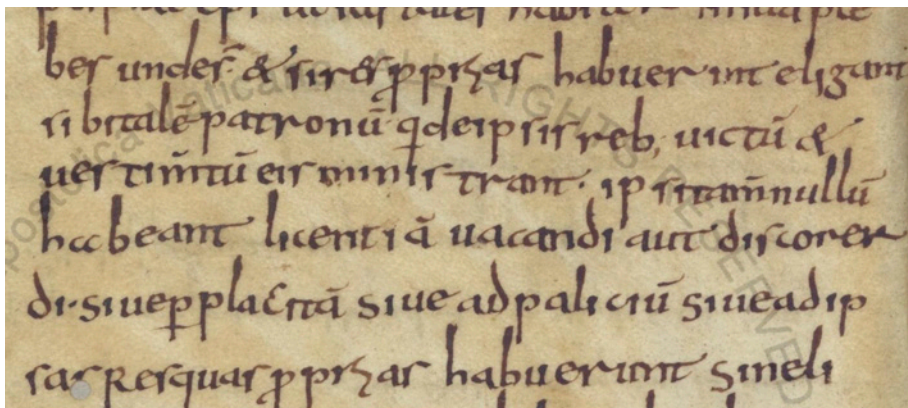 bes undeſ̄· & sires ꝓprias habuerint eligant
sibi talē patronū qi de ipsis reb; uictū &
uestim̄tū eis ministrant· ipsi tam̄ nullū
habeant licentiā uacandi aut discorer
di· siue ꝑ placitā siue ad paliciū siue ad ip
sas Res quas ꝓprias habuerunt sin eli